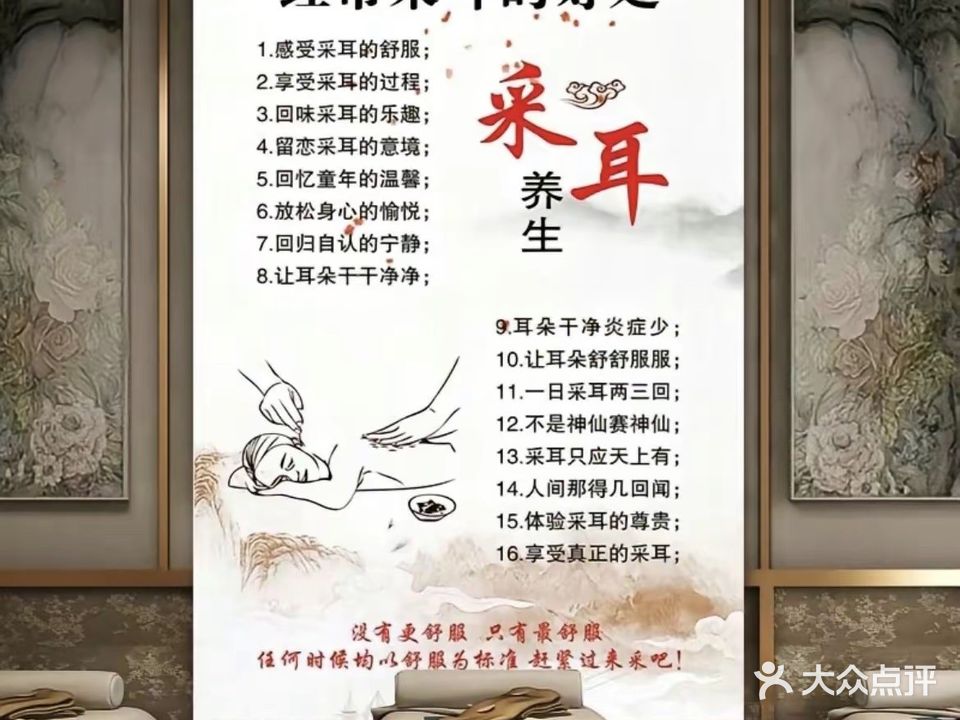 经常采耳的好处
1.感受采耳的舒服;
2.享受采耳的过程;
3.回味采耳的乐趣;
4.留恋采耳的意境;
5.回忆童年的温馨;
6.放松身心的愉悦;
7.回归自认的宁静;
8.让耳朵干干净净;
采耳
养生
9.耳朵干净炎症少;
10.让耳朵舒舒服服;
11.一日采耳两三回;
12.不是神仙赛神仙;
13.采耳只应天上有;
14.人间那得几回闻;
15.体验采耳的尊贵;
16.享受真正的采耳;
没有更舒服 只有最舒服
任何时候均以舒服为标准 赶紧过来采吧!
大众点评